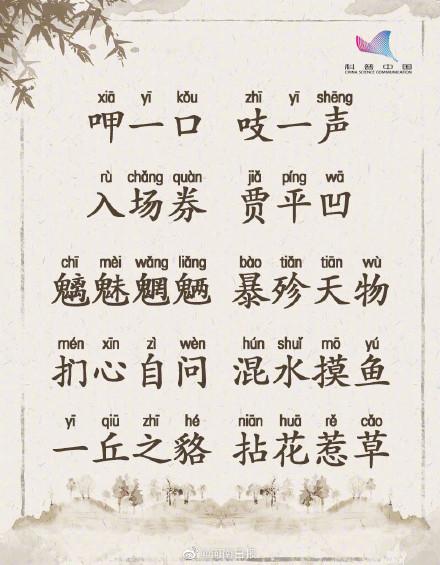 科普中国
CHINA SCIENCE COMMUNICATION
xiā yī kǒu zhī yī shēng
呷一口 吱一声
rù chǎng quàn jiǎ píng wā
入场券 贾平凹
chī mèi wǎng liǎng bào tiǎn tiān wù
魑魅魍魉 暴殄天物
mén xīn zì wèn hún shuǐ mō yú
扪心自问 混水摸鱼
yī qiū zhī hé niān huā rě cǎo
一丘之貉 拈花惹草